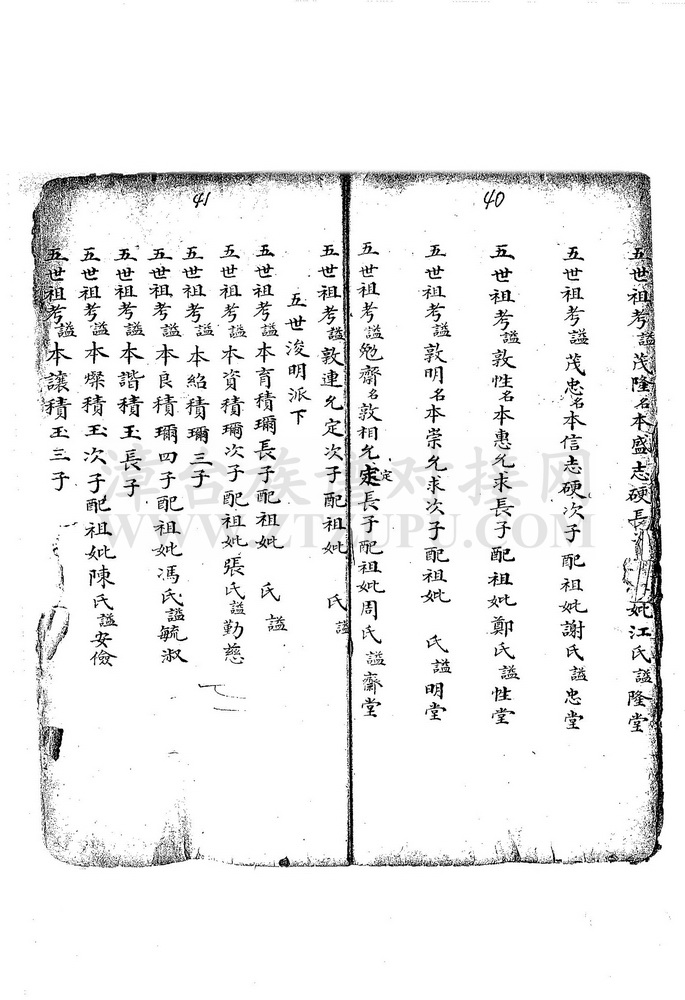 40
五世祖考謚茂隆名本盛志硬長妣江氏謚隆堂
五世祖考謚茂忠名本信志硬次子配祖妣謝氏謚忠堂
五世祖考謚敦性名本惠允求長子配祖妣鄭氏謚性堂
五世祖考謚敦明名本崇允求次子配祖妣 氏謚明堂
五世祖考謚勉齋名敦相允定長子配祖妣周氏謚齋堂
41
五世祖考謚敦連允定次子配祖妣 氏謚
五世浚明派下
五世祖考謚本育積瓓長子配祖妣 氏謚
五世祖考謚本資積瓓次子配祖妣張氏謚勤慈
五世祖考謚本紹積瓓三子
五世祖考謚本良積瓓四子配祖妣馮氏謚毓淑
五世祖考謚本諧積玉長子
五世祖考謚本燦積玉次子配祖妣陳氏謚安儉
五世祖考謚本讓積玉三子
漳台族谱对接网
WWW.ZTZUPU.COM